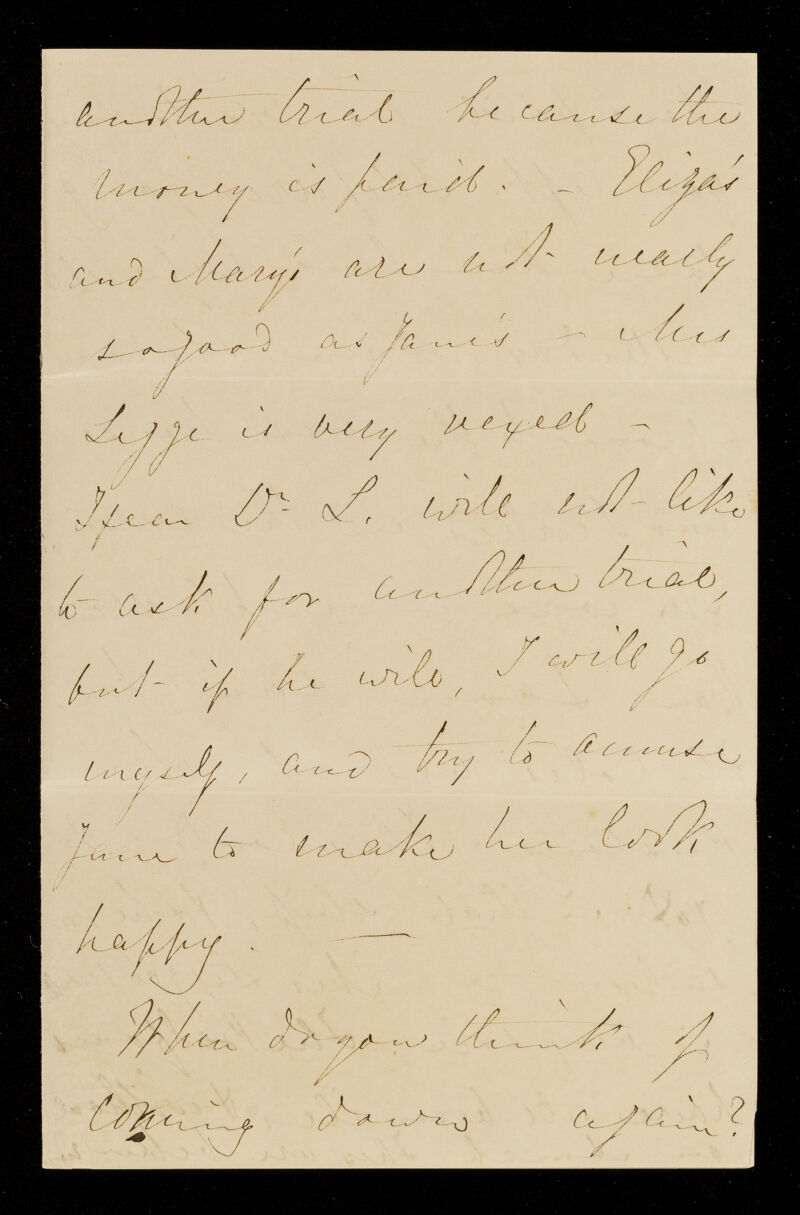 another trial because the
money is paid. - Eliza's
and Mary's are not nearly
so good as Jane's - Mrs
Legge is very vexed -
I fear Dr. L. will not like
to ask for another trial,
but if he will, I will go
myself, and try to amuse
Jane to make her look
happy. —
When do you think of
coming down again?